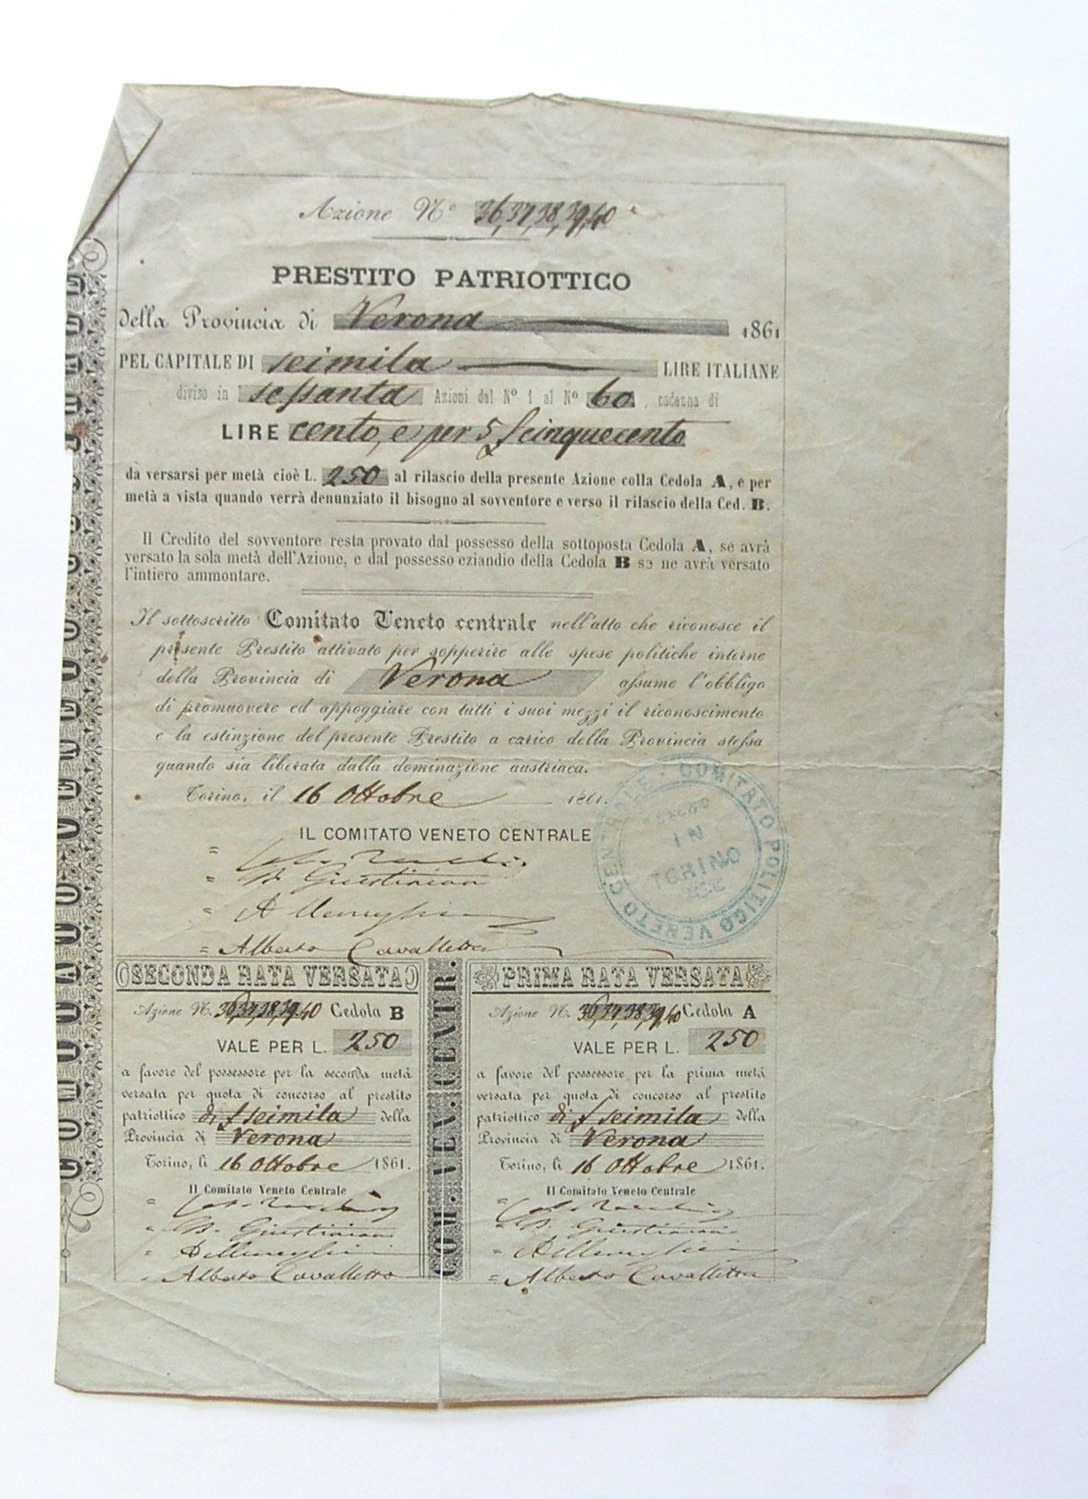 Azione N.º 36,37,38,39,40
PRESTITO PATRIOTTICO
della Provincia di Verona 1861
PEL CAPITALE DI seimila LIRE ITALIANE
diviso in sessanta Azioni dal Nº 1 al Nº 60, cadauna di
LIRE cento, e per 5 f cinquecento
da versarsi per metà cioè L. 250 al rilascio della presente Azione colla Cedola A, e per
metà a vista quando verrà denunziato il bisogno al sovventore e verso il rilascio della Ced. B.
Il Credito del sovventore resta provato dal possesso della sottoposta Cedola A, se avrà
versato la sola metà dell'Azione, e dal possesso eziandio della Cedola B se ne avrà versato
l'intiero ammontare.
Il sottoscritto Comitato Veneto centrale nell'atto che riconosce il
presente Prestito attivato per sopperire alle spese politiche interne
della Provincia di Verona assume l'obbligo
di promuovere ed appoggiare con tutti i suoi mezzi il riconoscimento
e la estinzione del presente Prestito a carico della Provincia stessa
quando sia liberata dalla dominazione austriaca.
Torino, il 16 Ottobre 1861.
COMITATO POLITICO VENETO CENTRALE
IN
TORINO
IL COMITATO VENETO CENTRALE
B. Giustinian
A Meneghini
Alberto Cavalletto
COMITATO VENETO
COM. VEN. CENTR.
SECONDA RATA VERSATA
Azione N. 36,37,38,39,40 Cedola B
VALE PER L. 250
a favore del possessore per la seconda metà
versata per quota di concorso al prestito
patriottico di f seimila della
Provincia di Verona
Torino, li 16 Ottobre 1861.
Il Comitato Veneto Centrale
B. Giustinian
A Meneghini
Alberto Cavalletto
PRIMA RATA VERSATA
Azione N. 36,37,38,39,40 Cedola A
VALE PER L. 250
a favore del possessore per la prima metà
versata per quota di concorso al prestito
patriottico di f seimila della
Provincia di Verona
Torino, li 16 Ottobre 1861.
Il Comitato Veneto Centrale
B. Giustinian
A Meneghini
Alberto Cavalletto